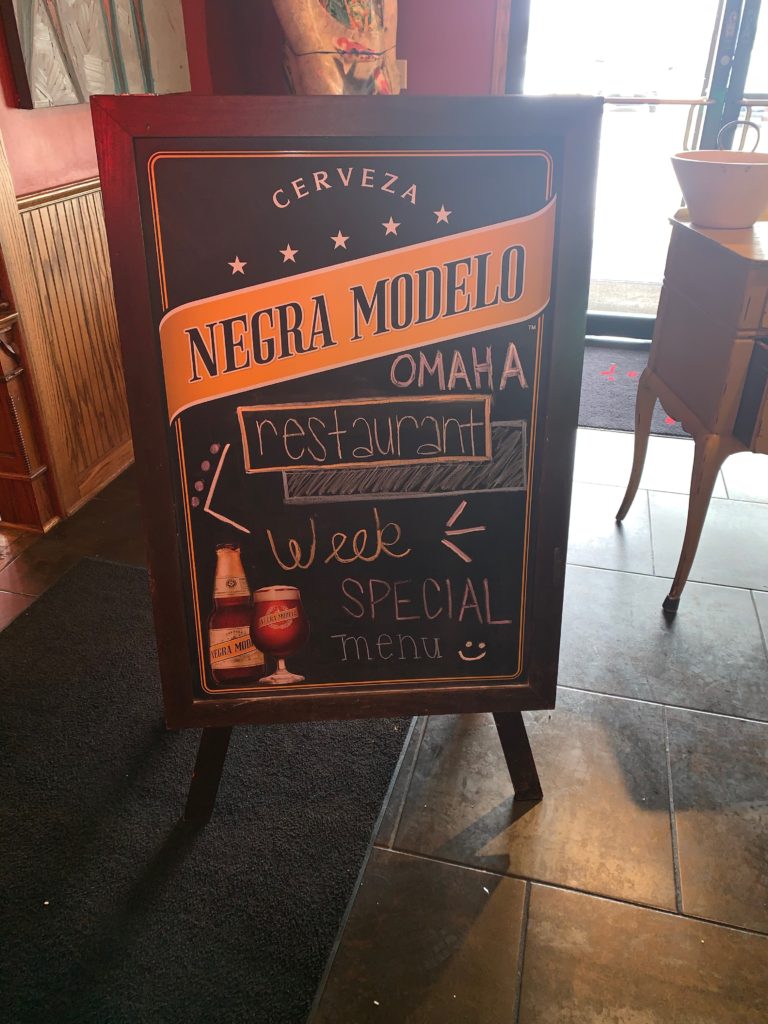 CERVEZA
NEGRA MODELO™
OMAHA
restaurant
Week
SPECIAL
menu
NEGRA MODELO